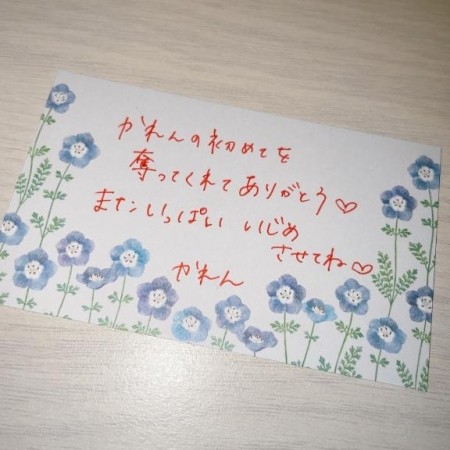 かれんの初めてを
奪ってくれてありがとう♡
またいっぱい いじめ
させてね♡
かれん